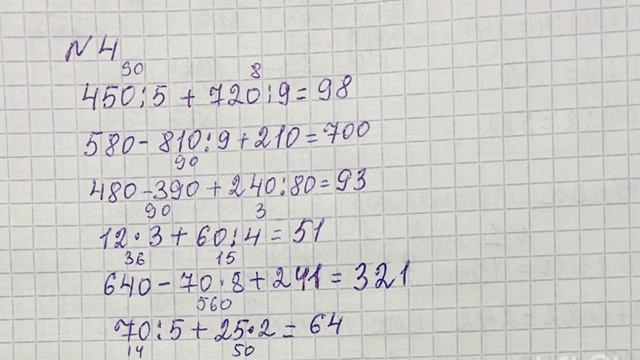 N 4
90 8
450:5 + 720:9 = 98
580 - 810:9 + 210 = 700
90
480 - 390 + 240:80 = 93
90 3
12·3 + 60:4 = 51
36 15
640 - 70·8 + 241 = 321
560
70:5 + 25·2 = 64
14 50